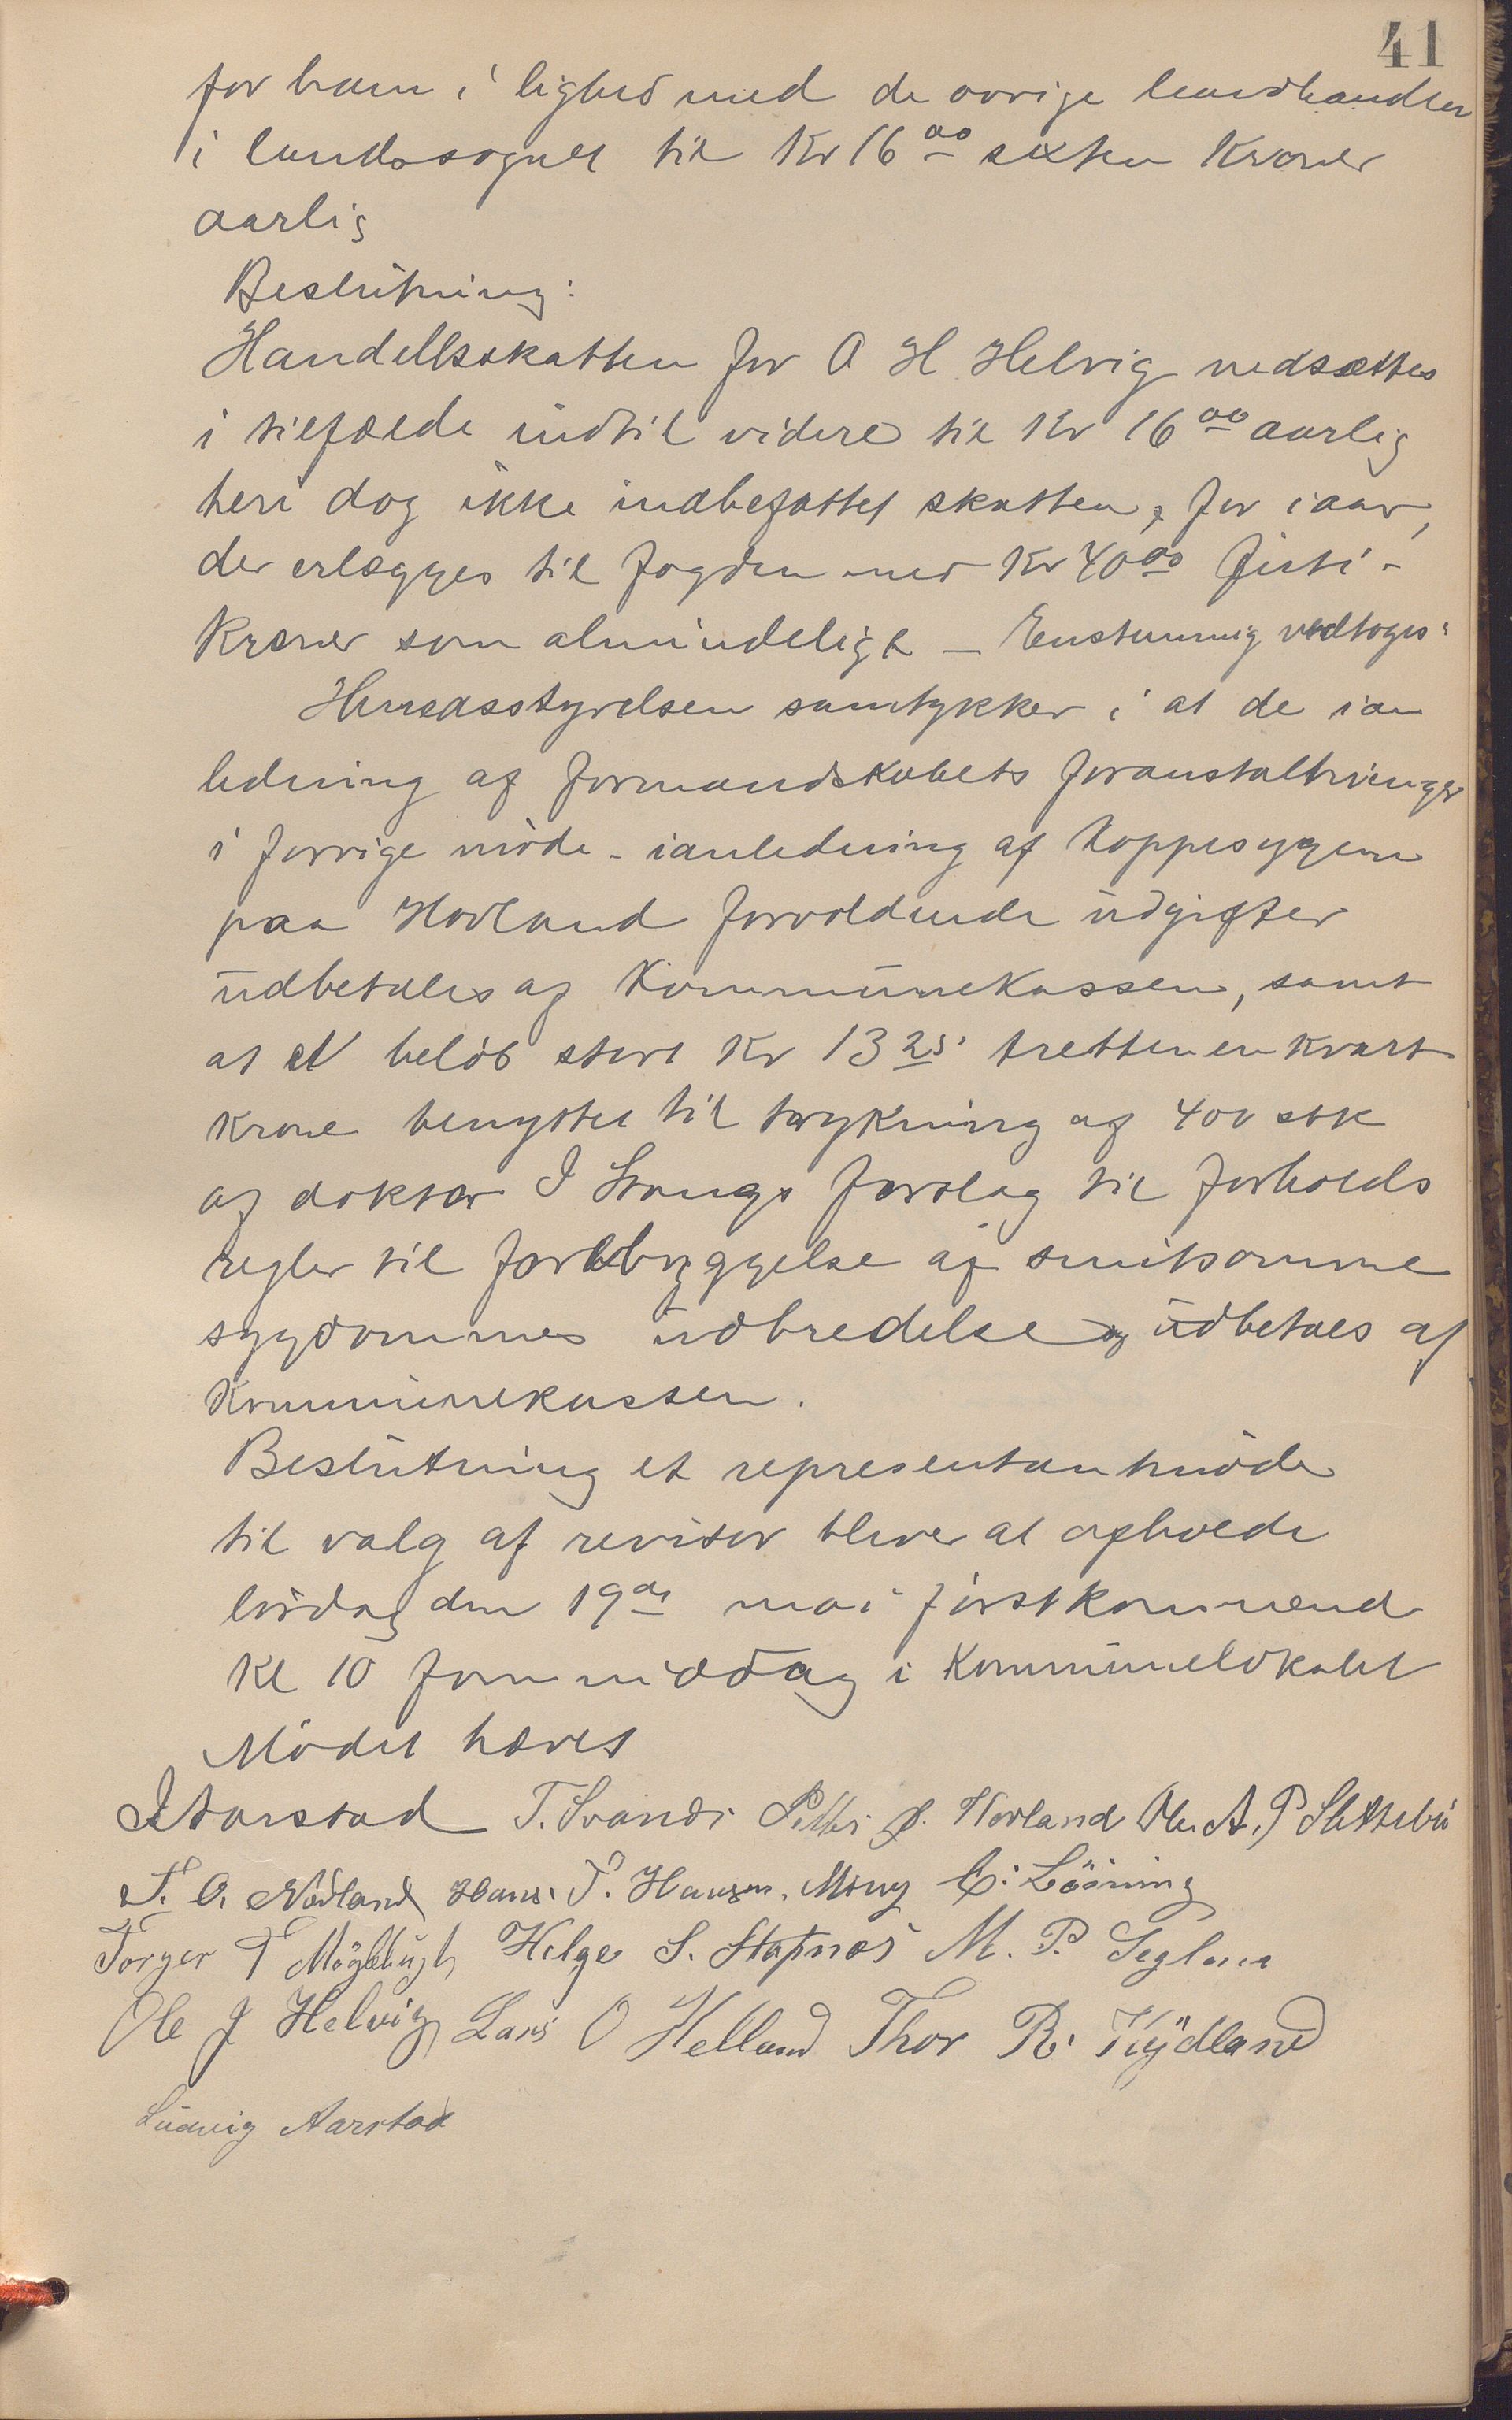 41
for ham i lighed med de øvrige landhandler
i landssognet til Kr 16 00 sexten Kroner
aarlig
Beslutning:
Handelsskatten for O H Helvig nedsættes
i tilfælde indtil videre til Kr 16 00 aarlig
heri dog ikke indbefattet skatten, for iaar,
der erlægges til fogden med Kr 40 00 firti-
Kroner som almindeligt – Enstemmig vedtoges:
Herredsstyrelsen samtykker i at de ian
ledning af formandskabets foranstaltninger
i forrige møde - ianledning af Koppesygen
paa Hovland forvoldende udgifter
udbetales af Kommunekassen, samt
at et beløb stort Kr 13 25 tretten en kvart
Krone benyttet til trykning af 400 stk
af doktor I Stangs forslag til forholds
regler til forebyggelse af smitsomme
sygdommes udbredelse og udbetales af
Kommunekassen.
Beslutning et representantmøde
til valg af revisor bliver at afholde
lørdag den 19de mai førstkommend
Kl 10 formiddag i Kommunelokalet
Mødet hævet
I Aarstad T. Svanes Petter J. Hovland Ole A. P Slettebø
T. O. Nødland Hans P. Hansen. Mony C. Lööning
Torger T Møgelbust Helge S. Stapnes M. P. Seglem
Ole J Helvig Lars O Helland Thor R. Kydland
Ludvig Aarstad